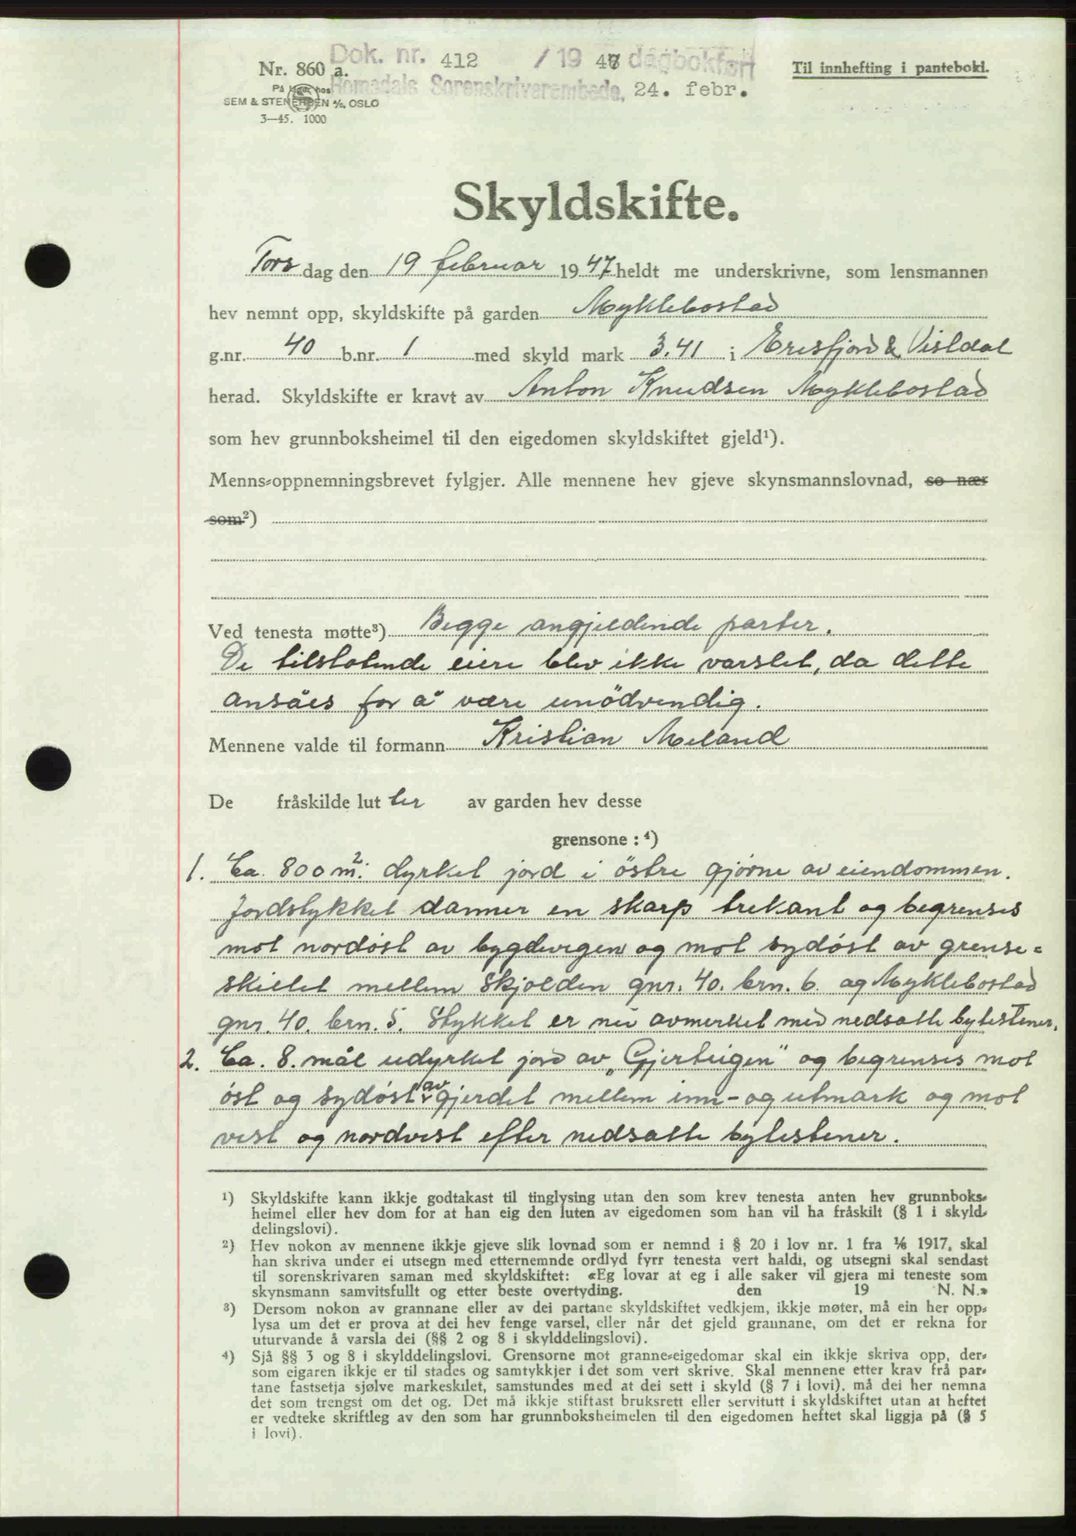 Dok. nr. 412 / 1947 dagbokført
Nr. 860 a.
Til innhefting i pantebok.
Romsdals Sorenskriverembede, 24. febr.
På lager hos
SEM & STENERSEN A/S, OSLO
3—45. 1000
Skyldskifte.
Tors dag den 19 februar 1947 heldt me underskrivne, som lensmannen
hev nemnt opp, skyldskifte på garden Myklebostad
g.nr. 40 b.nr. 1 med skyld mark 3.41 i Eresfjord & Vistdal
herad. Skyldskifte er kravt av Anton Knudsen Myklebostad
som hev grunnboksheimel til den eigedomen skyldskiftet gjeld¹).
Menns-oppnemningsbrevet fylgjer. Alle mennene hev gjeve skynsmannslovnad, so nær
som²)
Ved tenesta møtte³) Begge angjeldende parter.
De tilstøtende eiere blev ikke varslet, da dette
ansåes for å være unödvendig.
Mennene valde til formann Kristian Meland
De fråskilde lut ter av garden hev desse
grensone : ⁴)
1. Ca. 800 m². dyrket jord i östre hjørne av eiendommen.
Jordstykket danner en skarp trekant og begrenses
mot nordöst av bygdevegen og mot sydöst av grense=
skillet mellem Skjolden gnr. 40. brn. 6. og Myklebostad
gnr. 40. brn. 5. Stykket er nu avmerket med nedsatte bytestener.
2. Ca. 8. mål udyrket jord av "Gjerteigen" og begrenses mot
öst og sydöst av gjerdet mellem inn- og utmark og mot
vest og nordvest efter nedsatte bytestener.
¹) Skyldskifte kann ikkje godtakast til tinglysing utan den som krev tenesta anten hev grunnboks-
heimel eller hev dom for at han eig den luten av eigedomen som han vil ha fråskilt (§ 1 i skyld-
delingslovi).
²) Hev nokon av mennene ikkje gjeve slik lovnad som er nemnd i § 20 i lov nr. 1 fra 1/6 1917, skal
han skriva under ei utsegn med etternemnde ordlyd fyrr tenesta vert haldi, og utsegni skal sendast
til sorenskrivaren saman med skyldskiftet: «Eg lovar at eg i alle saker vil gjera mi teneste som
skynsmann samvitsfullt og etter beste overtyding. den 19 N. N.»
³) Dersom nokon av grannane eller av dei partane skyldskiftet vedkjem, ikkje møter, må ein her opp-
lysa um det er prova at dei hev fenge varsel, eller når det gjeld grannane, om det er rekna for
uturvande å varsla dei (§§ 2 og 8 i skylddelingslovi).
⁴) Sjå §§ 3 og 8 i skylddelingslovi. Grensorne mot granne-eigedomar skal ein ikkje skriva opp, der-
som eigaren ikkje er til stades og samtykkjer i det som vert skrive. Skal mennene etter krav frå par-
tane fastsetja sjølve markeskilet, samstundes med at dei sett i skyld (§ 7 i lovi), må dei her nemna
det som trengst om det og. Det må ikkje stiftast bruksrett eller servitutt i skyldskiftet utan at heftet
er vedteke skriftleg av den som har grunnboksheimelen til den eigedomen heftet skal liggja på (§ 5
i lovi).